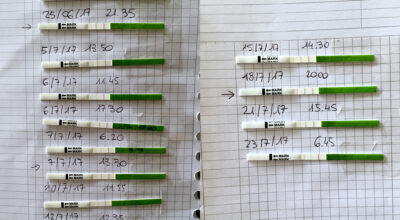 25/06/17 21.35
5/7/17 13.50
6/7/17 11.45
6/7/17 17.30
7/7/17 6.20
7/7/17 13.30
10/7/17 11.55
12/7/17 12.35
15/7/17 14.30
18/7/17 2000
21/7/17 15.45
23/7/17 6.45